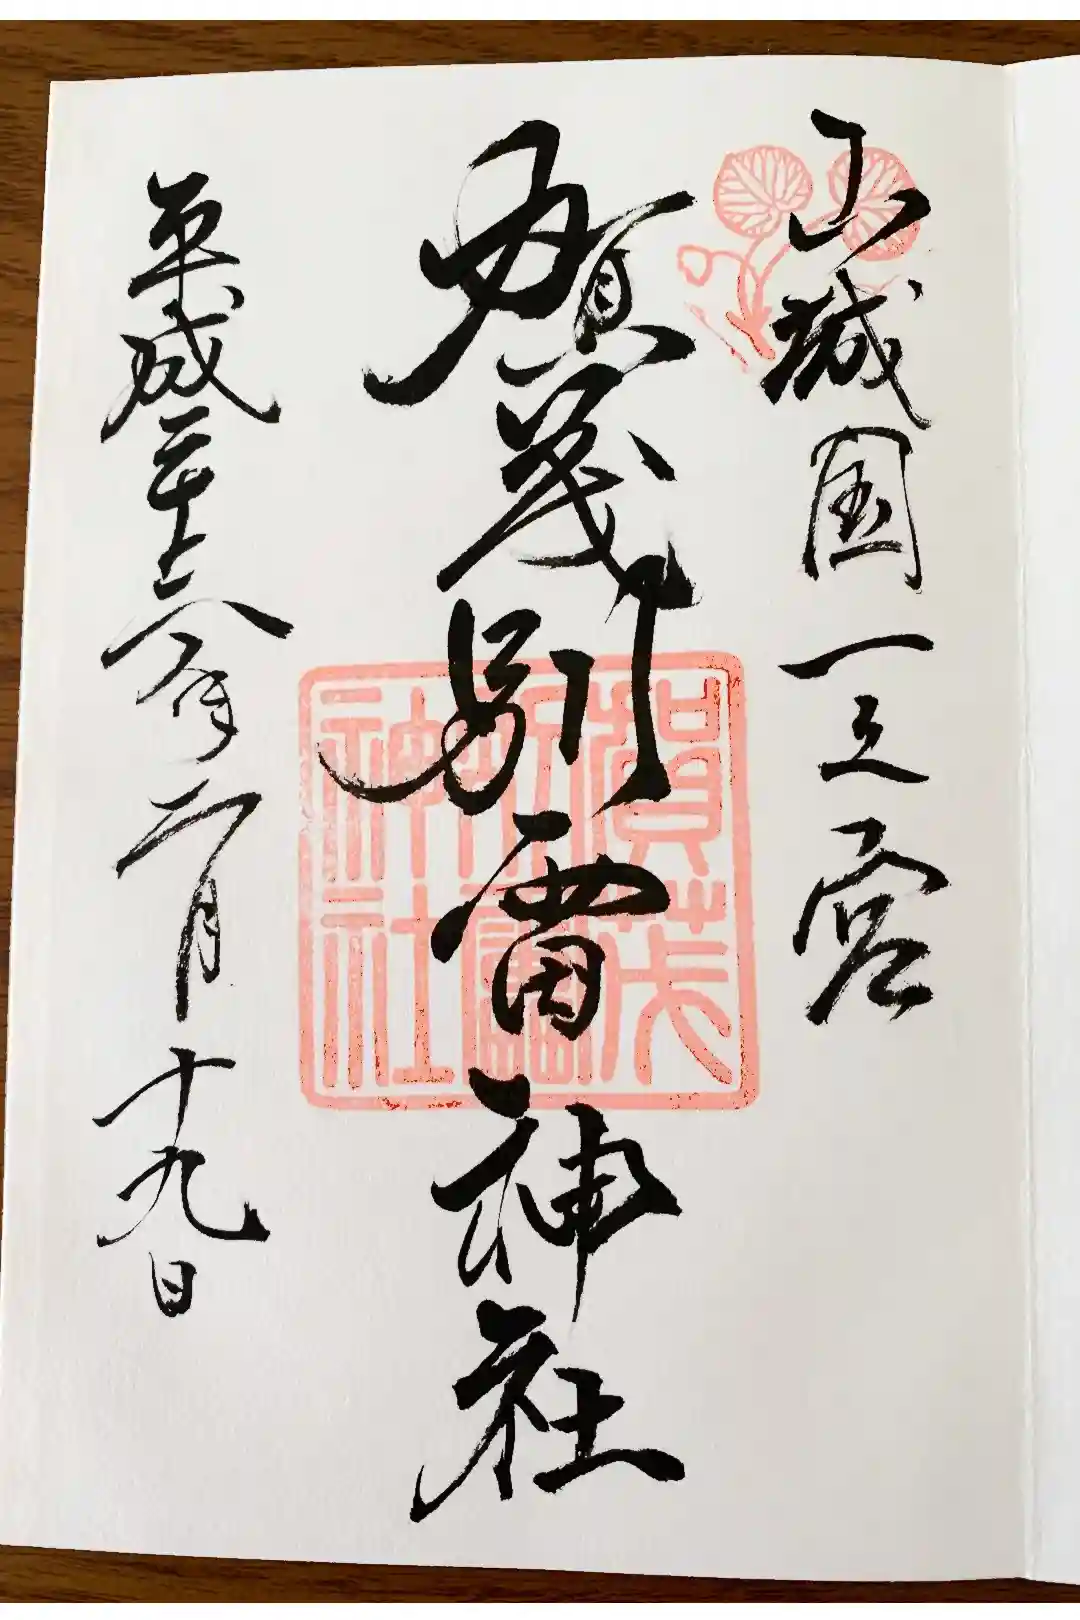 山城国一之宮
賀茂別雷神社
賀茂別雷神社
平成二十六年二月十九日